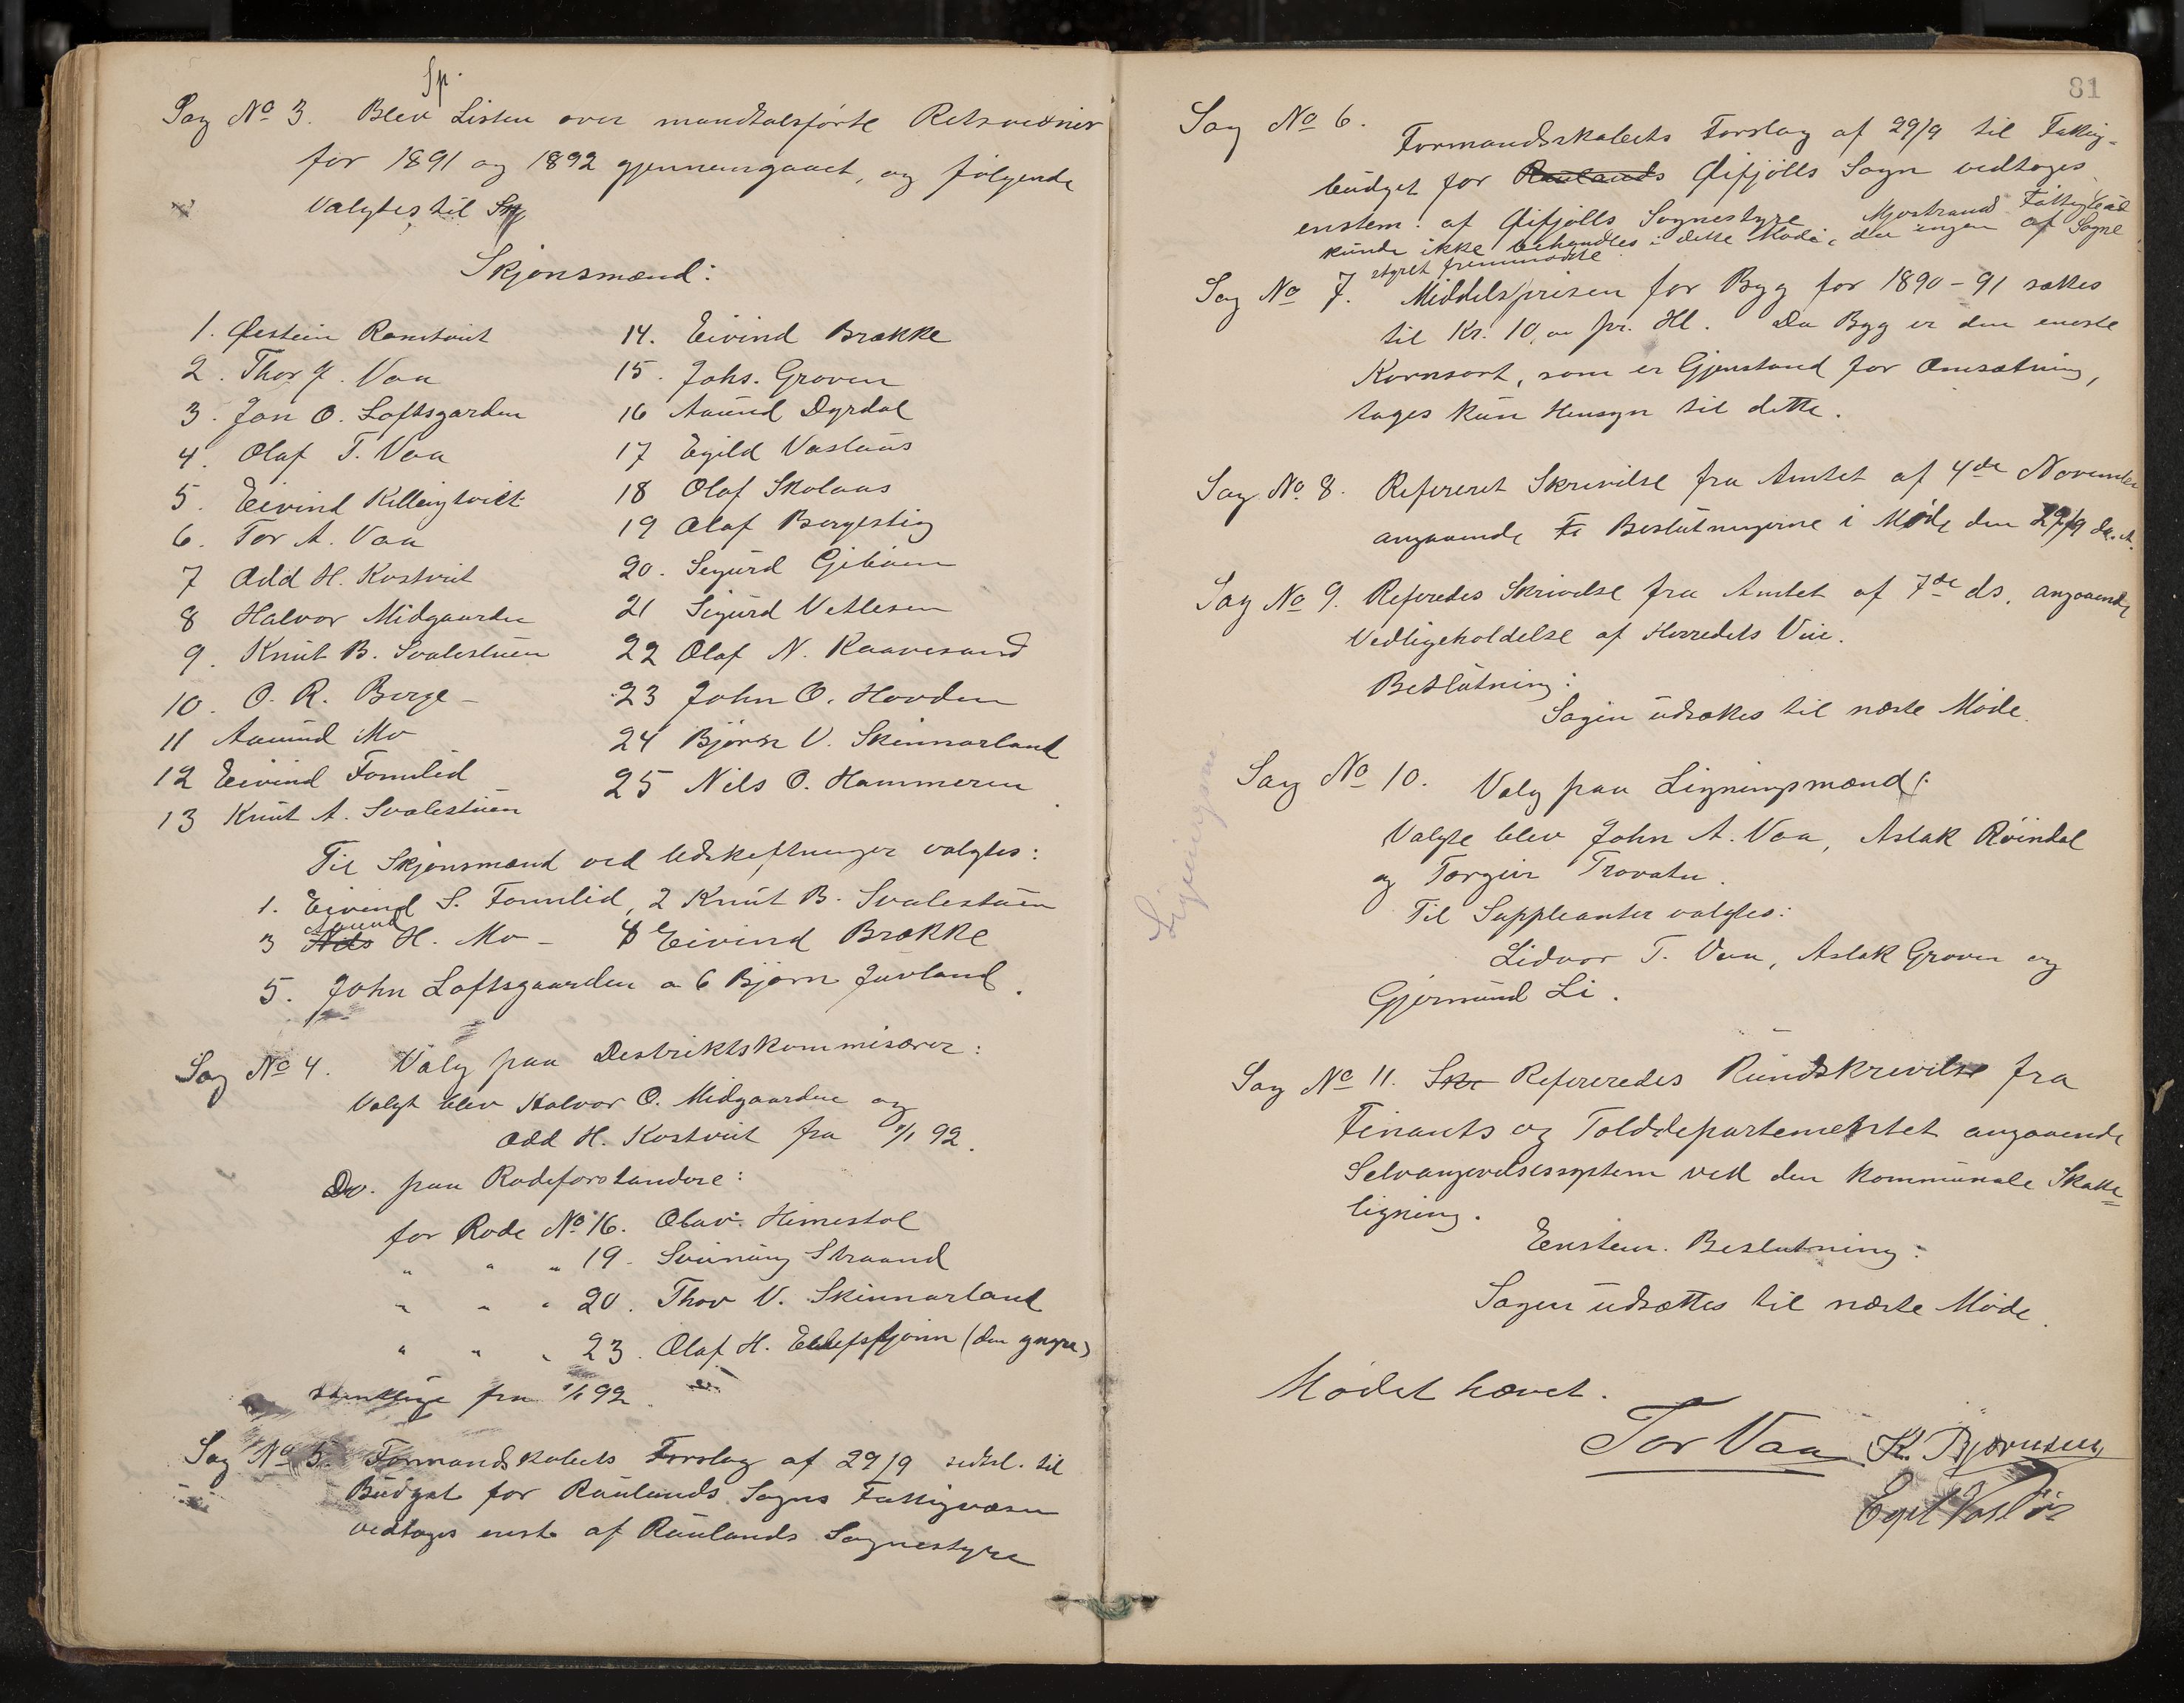 Sp.
Sag No 3. Blev Listen over mandtalsførte Retsvidner
for 1891 og 1892 gjennemgaaet, og følgende
valgtes til
Skjønsmænd:
1. Øistein Ramtveit
2. Thor J. Vaa
3. Jon O. Loftsgarden
4. Olaf T. Vaa
5. Eivind Killingtveit
6. Tor A. Vaa
7 Odd H. Kostveit
8 Halvor Midgaarden
9. Knut B. Svalestuen
10. O. R. Berge
11 Aamund Mo
12 Eivind Fonnlid
13 Knut A. Svalestuen
14. Eivind Brække
15. Johs. Groven
16 Aamund Dyrdal
17 Egild Vaslaus
18 Olaf Skolaas
19 Olaf Bergestig
20. Sigurd Gibøen
21 Sigurd Vetlesen
22 Olaf N. Raavesand
23 John O. Hovden
24 Bjørn V. Skinnarland
25 Nils O. Hammeren
Til Skjønsmænd ved Udskiftninger valgtes:
1. Eivind S. Fonnlid, 2 Knut B. Svalestuen
Aamund
3 Nils H. Mo - 4 Eivind Brække
5. John Loftsgaarden o 6 Bjørn Juvland.
Sag No 4. Valg paa Destriktskommisærer:
Valgt blev Halvor O. Midgaarden og
Odd H. Kostveit fra 1/1 92.
Do. paa Rodeforstandere:
for Rode No 16. Olav Himestøl
" " " 19. Sveinung Straand
" " " 20. Thov V. Skinnarland
" " " 23. Olaf H. (den yngre)
samtlige fra 1/1 92.
Sag No 5. Formandskabets Forslag af 29/9 sidstl. til
Budget for Raulands Sogns Fattigvæsen
vedtages enst. af Raulands Sognestyre
81
Sag No 6. Formandskabets Forslag af 29/9 til Fattig-
budget for Raulands Øifjølls Sogn vedtages
enstem. af Øifjølls Sognestyre Mjøstrands Fattigbud
kunde ikke behandles i dette Møde, da ingen af Sogne
styret fremmødte
Sag No 7. Middelsprisen for Byg for 1890-91 sættes
til Kr. 10,00 pr. Hl. Da Byg er den eneste
Kornsort, som er Gjenstand for Omsætning,
tages kun Hensyn til dette.
Sag No. 8. Refereret Skrivelse fra Amtet af 4de November
angaaende Beslutningerne i Møde den 29/9 d.A.
Sag No 9. Referedes Skrivelse fra Amtet af 7de ds. angaaende
Vedligeholdelse af Herredets Veie.
Beslutning:
Sagen udsættes til næste Møde.
Ligningsm
Sag No 10. Valg paa Ligningsmænd:
Valgte blev John A. Vaa, Aslak Røindal
og Torgeir Trovatn.
Til Suppleanter valgtes:
Lidvor T. Vaa, Aslak Groven og
Gjermund Li.
Sag No 11. Skr Refereredes Rundskrivelse fra
Finants og Tolddepartementet angaaende
Selvangivelsessystem ved den kommunale Skatte-
ligning.
Enstem. Beslutning:
Sagen udsættes til næste Møde.
Mødet hævet.
Tor Vaa K. Bjørnsen
Egil Vaslös